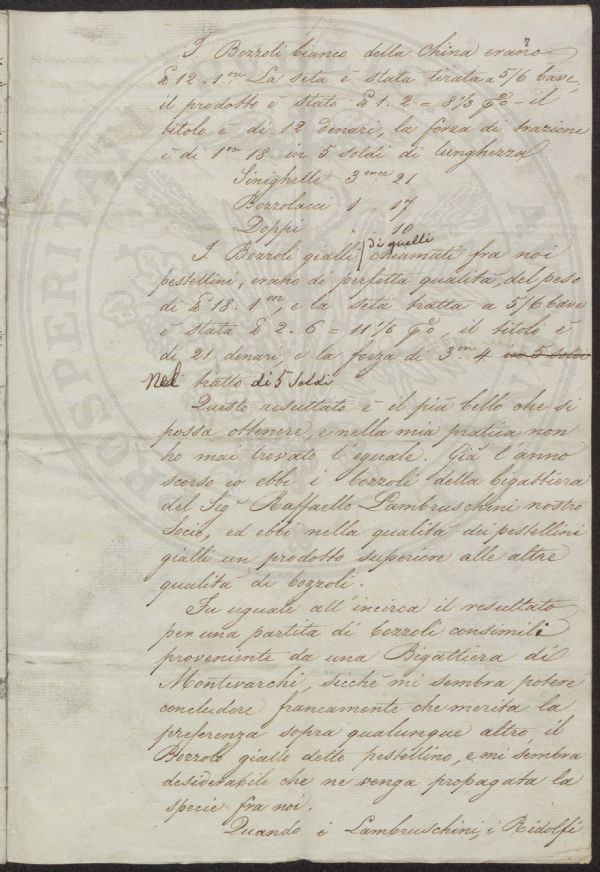 7
I Bozzoli bianco della China erano
℔ 12. 1 on. La seta è stata tirata a 5/6 bave,
il prodotto è stato ℔ 1. 2 = 8 1/3 p% - il
titolo è di 12 denari, la forza di trazione
è di 1 on 18 in 5 soldi di lunghezza
Sinighelle 3 once 21
Bozzolacci 1 17
Doppi 10
I Bozzoli gialli di quelli chiamati fra noi
pestellini, erano di perfetta qualità, del peso
di ℔ 18. 1 on, e la seta tratta a 5/6 bave
è stata ℔ 2. 6 = 11 1/6 p%, il titolo è
di 21 denari e la forza di 3 on 4 in 5 soldi
nel tratto di 5 Soldi
Questo resultato è il più bello che si
possa ottenere, e nella mia pratica non
ho mai trovato l'eguale. Già l'anno
scorso io ebbi i bozzoli della bigattiera
del Sigr Raffaello Lambruschini nostro
Socio, ed ebbi nella qualità dei pestellini
gialli un prodotto superiore alle altre
qualità di bozzoli.
Fu uguale all'incirca il resultato
per una partita di bozzoli consimili
proveniente da una Bigattiera di
Montevarchi, sicchè mi sembra potere
concludere francamente che merita la
preferenza sopra qualunque altro, il
Bozzolo giallo detto pestellino, e mi sembra
desiderabile che ne venga propagata la
specie fra noi.
Quando i Lambruschini, i Ridolfi
PROSPERITATI